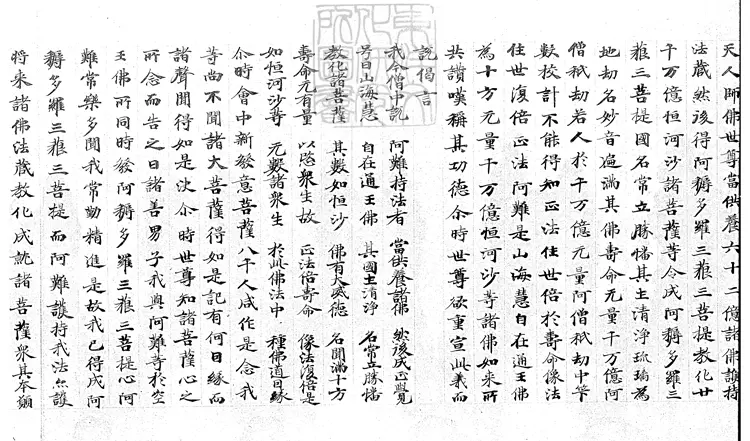 天人師佛世尊當供養六十二億諸佛護持
法藏然後得阿耨多羅三藐三菩提教化廿
千万億恒河沙諸菩薩等令成阿耨多羅三
藐三菩提國名常立勝幡其土清淨琉璃為
地劫名妙音遍滿其佛壽命无量千万億阿
僧祇劫若人於千万億无量阿僧祇劫中筭
數校計不能得知正法住世倍於壽命像法
住世復倍正法阿難是山海慧自在通王佛
為十方无量千万億恒河沙等諸佛如來所
共讚嘆稱其功德尒時世尊欲重宣此義而
說偈言
我今僧中說 阿難持法者 當供養諸佛 然後成正覺
号曰山海慧 自在通王佛 其國土清淨 名常立勝幡
教化諸菩薩 其數如恒沙 佛有大威德 名聞滿十方
壽命无有量 以愍衆生故 正法倍壽命 像法復倍是
如恒河沙等 无數諸衆生 於此佛法中 種佛道因緣
尒時會中新發意菩薩八千人咸作是念我
等尚不聞諸大菩薩得如是記有何因緣而
諸聲聞得如是決尒時世尊知諸菩薩心之
所念而告之曰諸善男子我與阿難等於空
王佛所同時發阿耨多羅三藐三菩提心阿
難常樂多聞我常勤精進是故我已得成阿
耨多羅三藐三菩提而阿難護持我法亦護
將來諸佛法藏教化成就諸菩薩衆其本願